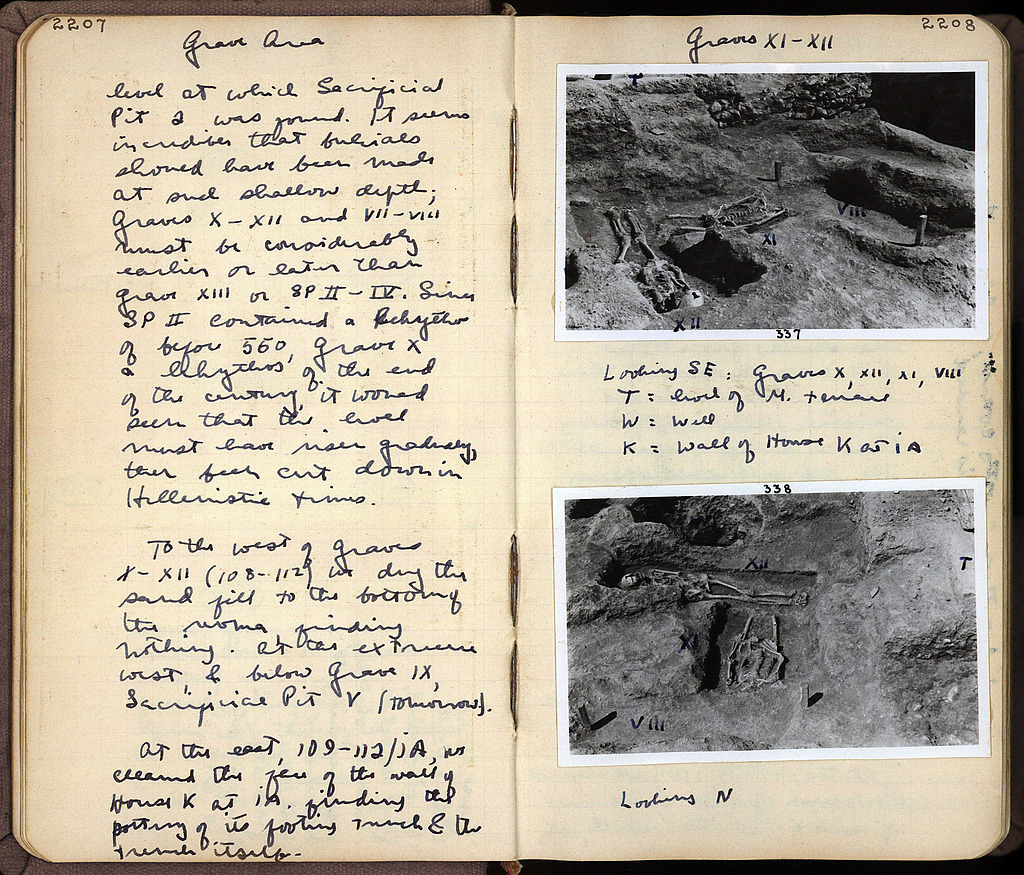 2207
Grave Area
level at which Sacrificial
Pit 2 was found. It seems
incredible that burials
should have been made
at such shallow depth;
Graves X-XII and VII-VIII
must be considerably
earlier or later than
grave XIII or SP II-IV. Since
SP II contained a lekythos
of before 550, Grave X
a lekythos of the end
of the century, it would
seem that the level
must have risen gradually,
then been cut down in
Hellenistic times.
To the west of Graves
X-XII (108-112) we dug the
sand fill to the bottom of
the revma, finding
nothing. At the extreme
west & below Grave IX,
Sacrificial Pit V (tomorrow).
At the east, 109-112/ΙΑ, we
cleaned the face of the wall of
House K at ΙΑ, finding the
pottery of its footing trench & the
trench itself.
2208
Graves XI-XII
T
VIII
XI
XII
337
Looking SE: Graves X, XII, XI, VIII
T = level of M. Terrace
W = Well
K = Wall of House K at ΙΑ
338
XII
T
XI
VIII
Looking N